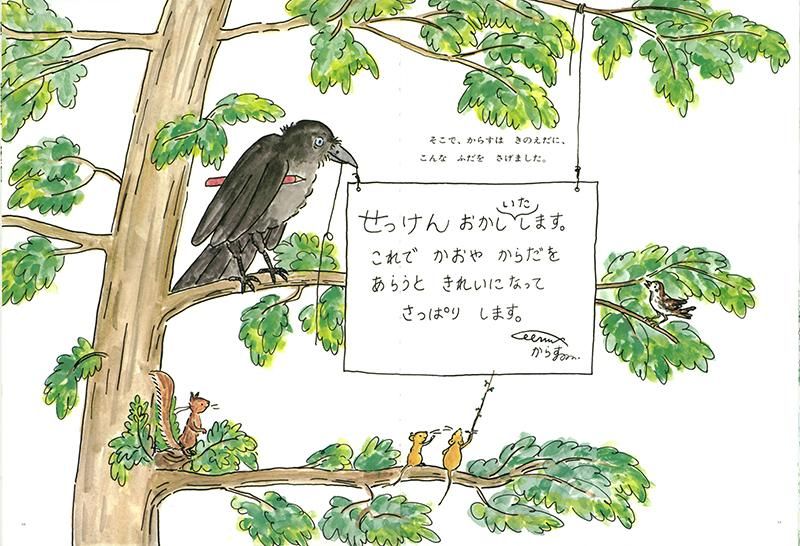 そこで、からすは きのえだに、
こんな ふだを さげました。
いた
せっけん おかし します。
これで かおや からだを
あらうと きれいになって
さっぱり します。
からす